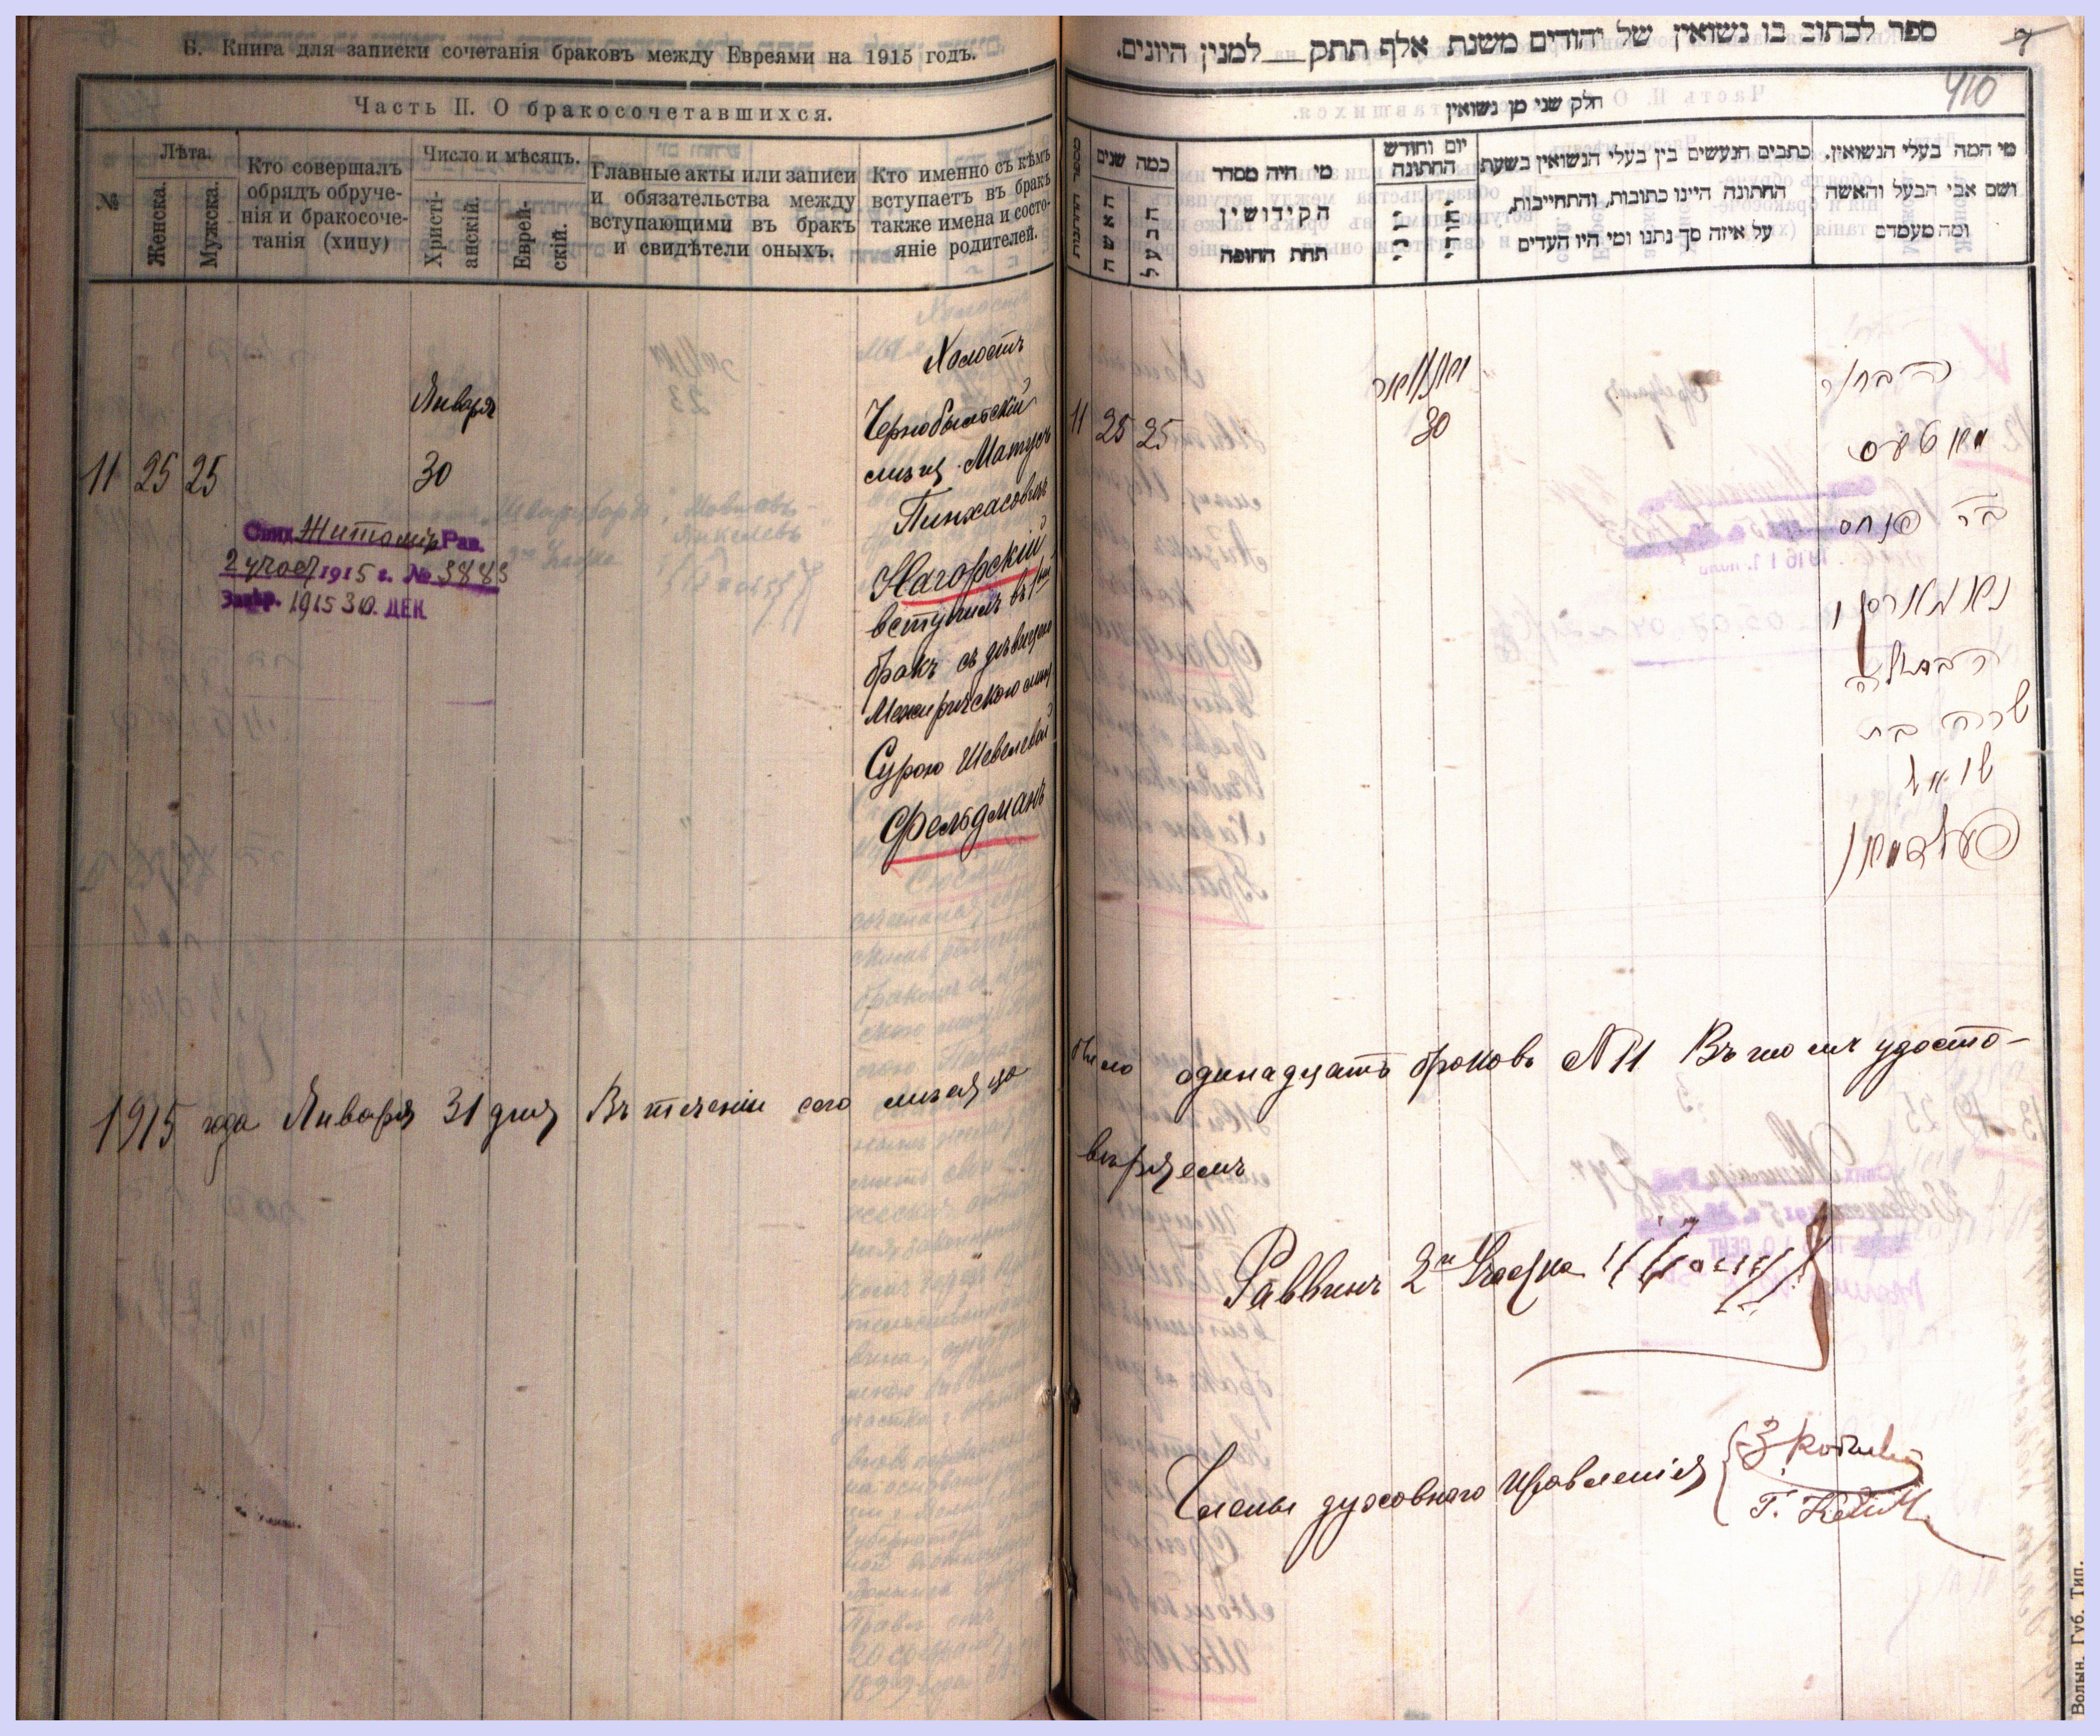 Б. Книга для записки сочетанія браковъ между Евреями на 1915 годъ.
Часть II. О бракосочетавшихся.
№
Лѣта.
Женска.
Мужска.
Кто совершалъ
обрядъ обруче-
нія и бракосоче-
танія (хипу)
Число и мѣсяцъ.
Христі-
анскій.
Еврей-
скій.
Главные акты или записи
и обязательства между
вступающими въ бракъ
и свидѣтели оныхъ.
Кто именно съ кѣмъ
вступаетъ въ бракъ
также имена и состо-
яніе родителей.
11 25 25
Января
30
Свид. Житомір Рав.
2 участ 1915 г. № 3883
1915 30. ДЕК
Холостъ
Чернобыльскій
мѣщ. Матусъ
Пинхасовичъ
Нагорскій
вступилъ въ 1ый
бракъ съ дѣвицею
Межирѣчскою мѣщ.
Сурою Шевелевой
Фельдманъ
1915 года Января 31 дня Въ теченіи сего мѣсяца
ספר לכתוב בו נשואין של יהודים משנת אלף תתק__למנין היונים.
7
410
חלק שני מן נשואין
מספר החתונות
כמה שנים
האשה
הבעל
מי היה מסדר
הקידושין
תחת החופה
יום וחודש
החתונה
כתבים הנעשים בין בעלי הנשואין בשעת
החתונה היינו כתובות, והתחייבות,
על איזה סך נתנו ומי היו העדים
מי המה בעלי הנשואין.
ושם אבי הבעל והאשה
ומה מעמדם
11 25 25
יאנואר
30
הבחור
מאטעס
בר פנחס
נאגארסקי
הבתולה
שרה בת
שואל
פעלדמאן
было одинадцать браковъ № 11 Въ чемъ удосто-
вѣряемъ
Раввинъ 2го Участка
Члены духовного Правленія